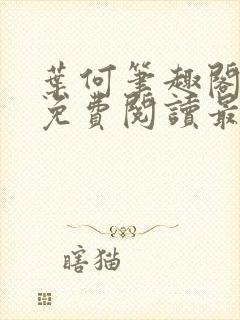 葉何筆趣閣
免費閱讀最
瞎猫